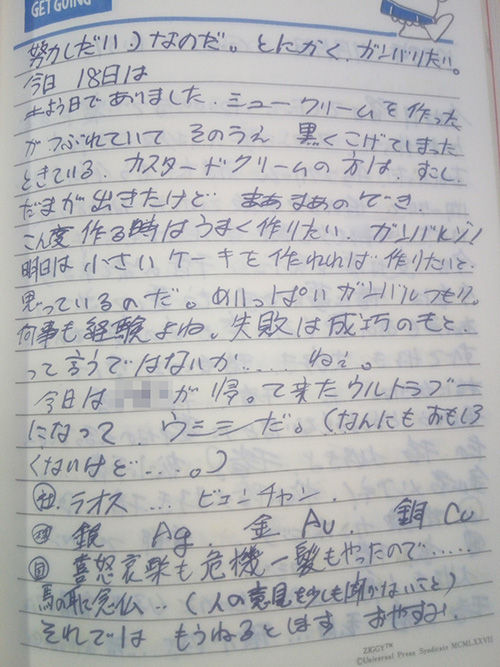 GET GOING
努力しだい。)なのだ。とにかく、ガンバリたい。
今日 18日は
土よう日でありました。シュークリームを作った
がつぶれていて そのうえ 黒くこげてしまった
ときている。カスタードクリームの方は、すこし、
だまが出きたけど まあまあのでき、
こん度 作る時はうまく作りたい、ガンバルゾ!
明日は 小さい ケーキを 作れれば 作りたいと、
思っているのだ。めいっぱいガンバルつもり。
何事も経験よね。失敗は成巧のもと、
って言うではないか....ねぇ。
今日は が 帰。て来たウルトラブー
になって ウミミだ。(なんにもおもしろ
くないけど....。)
社. ラオス ... ビエンチャン.
理 銀 Ag. 金 Au 銅 Cu
国 喜怒哀楽も危機一髪もやったので......
馬の耳に念仏..(人の意見を少しも聞かないこと)
それでは もうねるとします おやすみ.
ZIGGY™
©Universal Press Syndicate MCMLXXVII